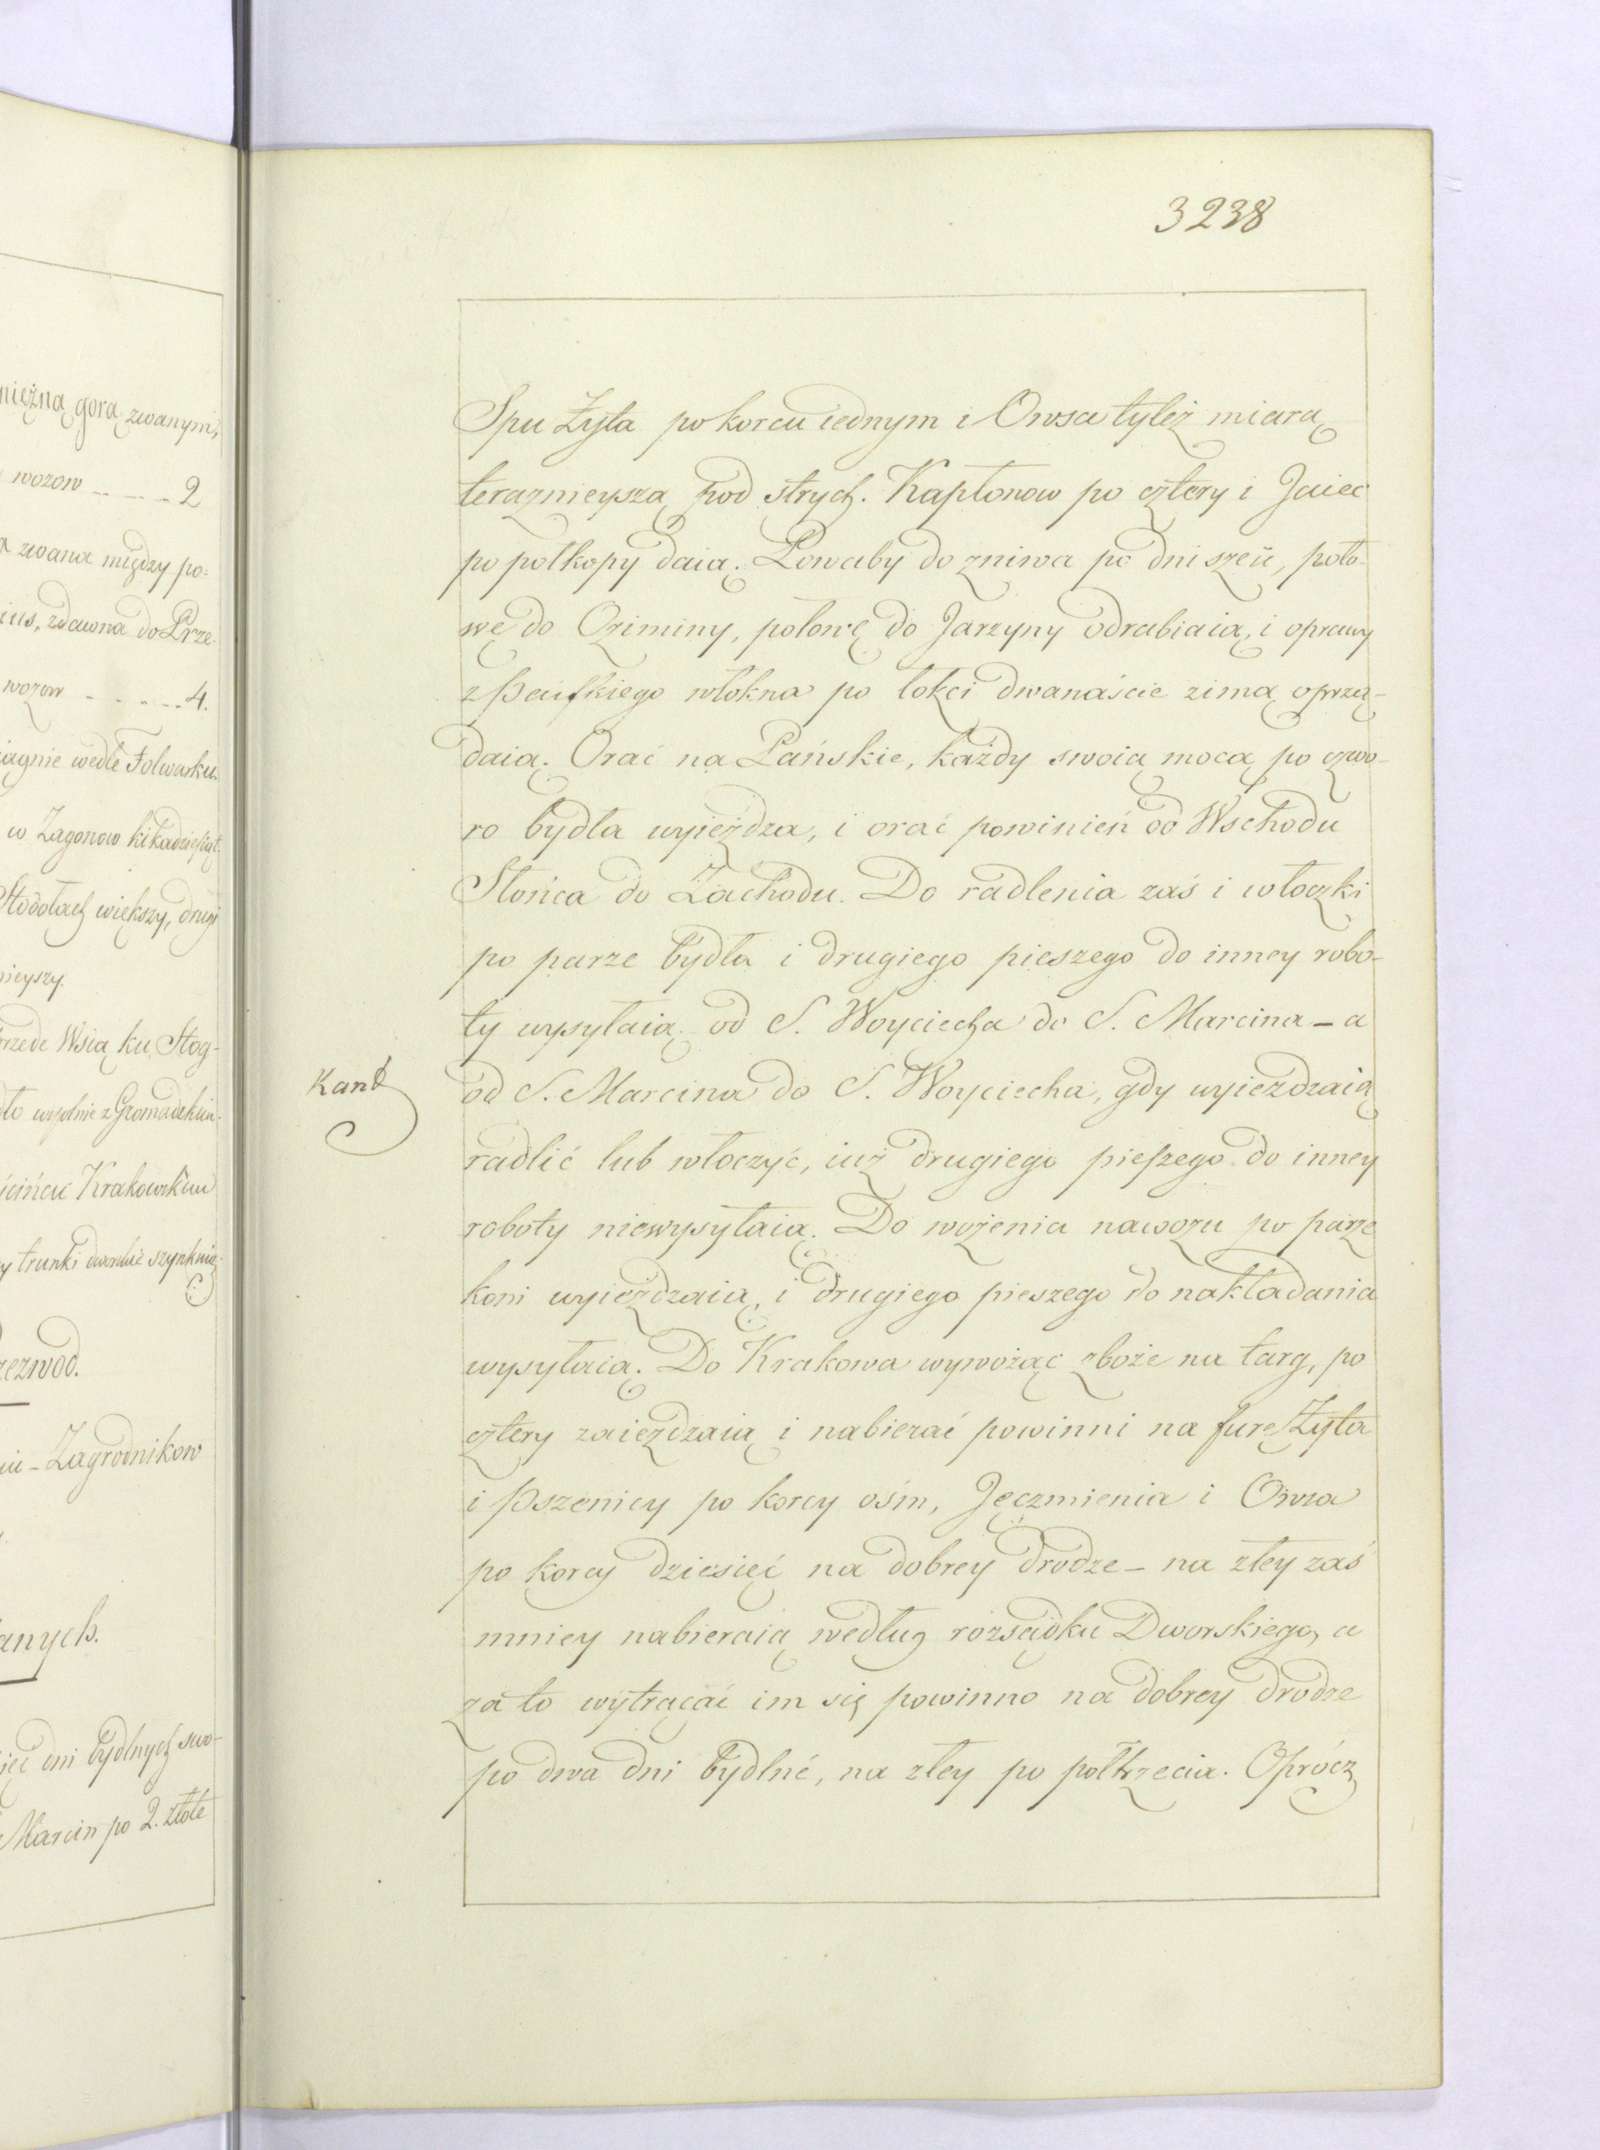 nieżną gorą zwanymi,
wozow - - - - 2
zwana między po=
ius, zdawna do Prze-
wozow - - - - - 4.
iagnie wedle Folwarku.
w Zagonow kilkadziesiąt.
Stodołach większy, drugi
nieyszy.
rzede Wsią ku Stog-
Krakowskim
trunki
zezwod.
Zagrodnikow
anych.
ięć dni bydlnych swo-
Marcin po 2. złote
3238
Spu Żyta po korcu iednym i Owsa tyleż miarą
teraznieyszą pod strych. Kapłonow po cztery i Jaiec
po połkopy daią. Powaby do zniwa po dni sześć, poło-
wę do Oziminy, połowę do Jarzyny odrabiaią, i oprawy
z Pańskiego włokna po łokci dwanaście zimą oprzą-
daią. Orać na Pańskie, każdy swoią mocą po czwo-
ro bydła wyieżdza, i orać powinień od Wschodu
Słońca do Zachodu. Do radlenia zaś i włoczki
po parze bydła i drugiego pieszego do inney robo-
ty wysyłaią od S. Woyciecha do S. Marcina - a
Kant
od S. Marcina do S. Woyciecha, gdy wyieżdzaią
radlić lub włoczyć, iuż drugiego pieszego do inney
roboty niewysyłaią. Do wożenia nawozu po parze
koni wyieżdzaią, i drugiego pieszego do nakładania
wysyłaią. Do Krakowa wywożąc zboże na targ, po
cztery zaieżdzaią i nabierać powinni na furę Żyta
i Pszenicy po korcy ośm, Jęczmienia i Owsa
po korcy dziesięć na dobrey drodze - na złey zaś
mniey nabieraią według rozsądku Dworskiego, a
za to wytrącać im się powinno na dobrey drodze
po dwa dni bydlné, na złey po połtrzecia. Oprócz